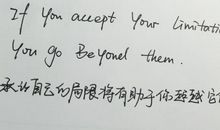 If You accept Your limitati
You go Beyond them.
承认自己的局限将有助于你超越它